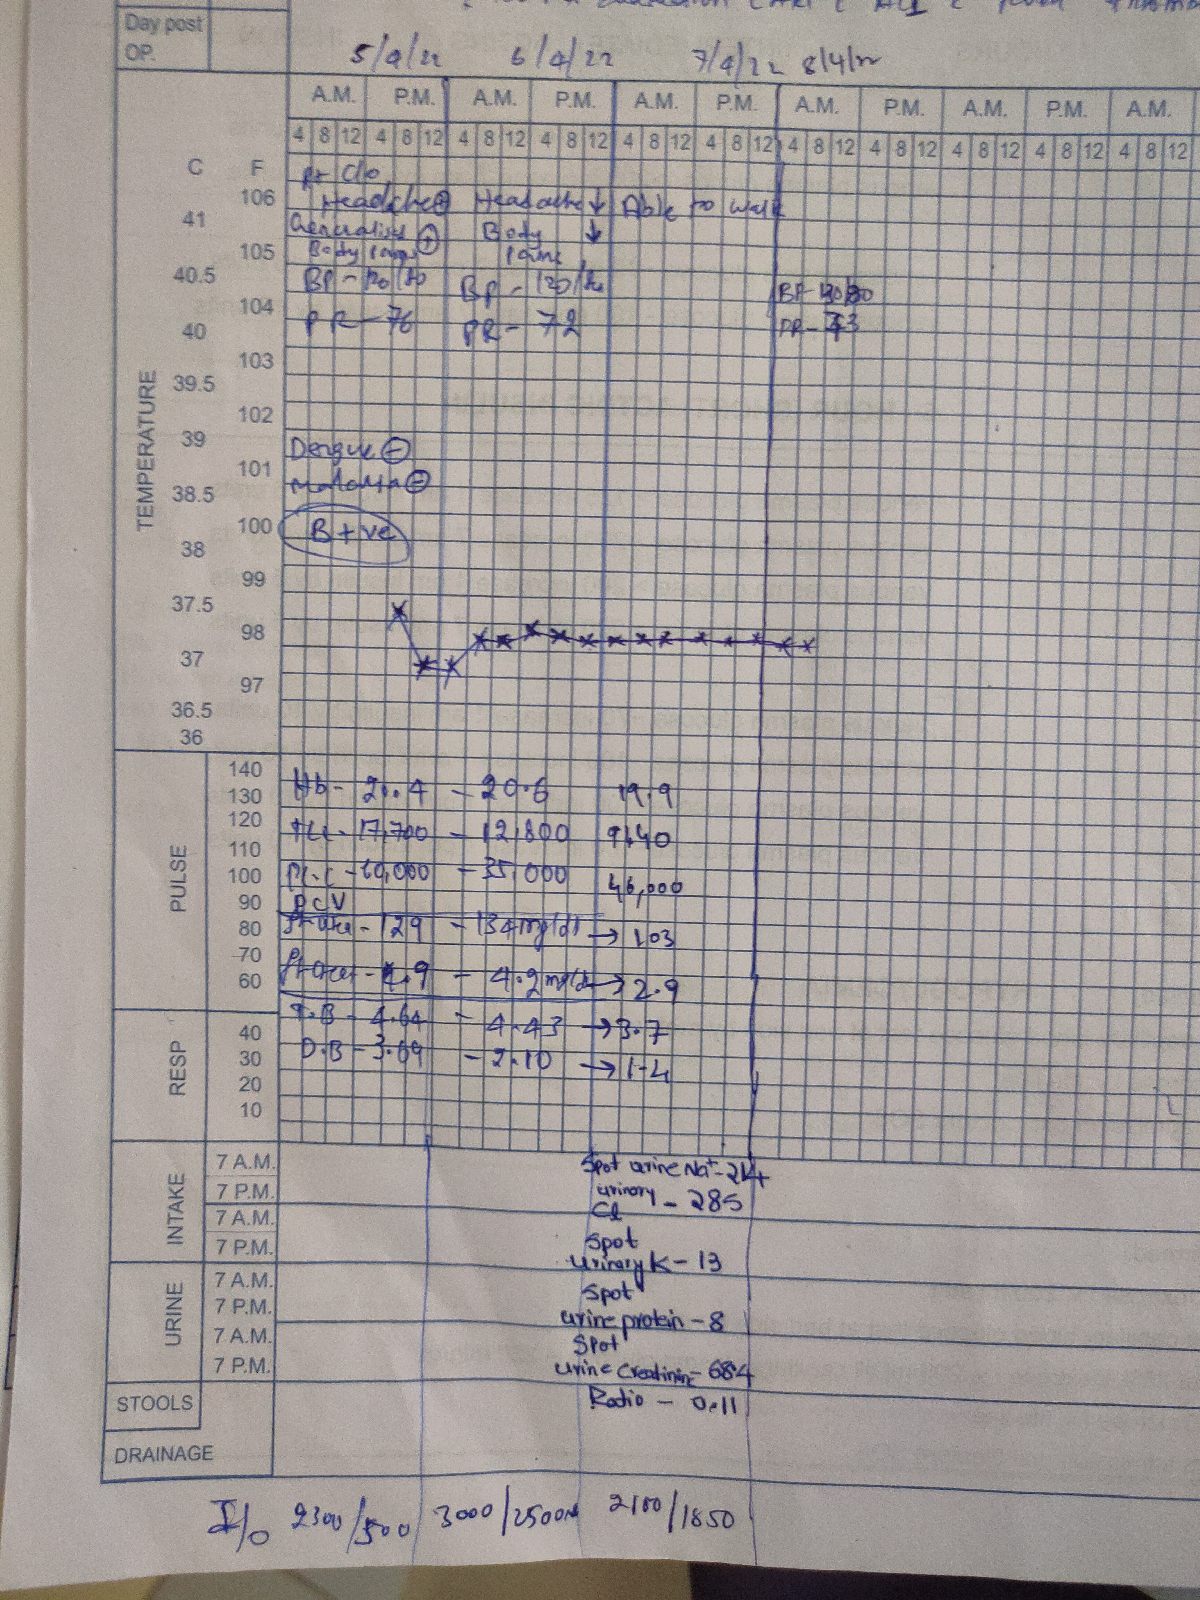 Day post
OP.
5/4/22 6/4/22 7/4/22 8/4/22
A.M. P.M. A.M. P.M. A.M. P.M. A.M. P.M. A.M. P.M. A.M.
4 8 12 4 8 12 4 8 12 4 8 12 4 8 12 4 8 12 4 8 12 4 8 12 4 8 12 4 8 12 4 8
C F
TEMPERATURE
Pt C/o
106 Headache + Headache ↓ Able to walk
41 Generalised + Body ↓
105 Body pains pains
40.5 BP - 120/80 BP - 120/80
104 BP
40 PR - 76 PR - 72 PR
103
39.5
102
39 Dengue -
101 malaria -
38.5
100 B +ve
38
99
37.5
98
37
97
36.5
36
PULSE
140
130 Hb - - 20.6 19.9
120 TLC - 17,700 - 12,800
110
100 - 35,000 46,000
90 PCV
80 - 129 - 134 mg/dl → 103
70
60 - 4.2 mg/dl → 2.9
RESP
T.B - 4.64 - 4.43 → 3.7
40
30 D.B - 3.09 - 2.10 → 1.4
20
10
INTAKE
7 A.M. Spot urine Na+ -
7 P.M. urinary - 285
7 A.M. Cl
7 P.M. Spot
urinary K - 13
URINE
7 A.M. Spot
7 P.M. urine protein - 8
7 A.M. Spot
7 P.M. urine creatinine - 68.4
STOOLS Ratio - 0.11
DRAINAGE
I/O 2300/500 3000/2500ml 2100/1850